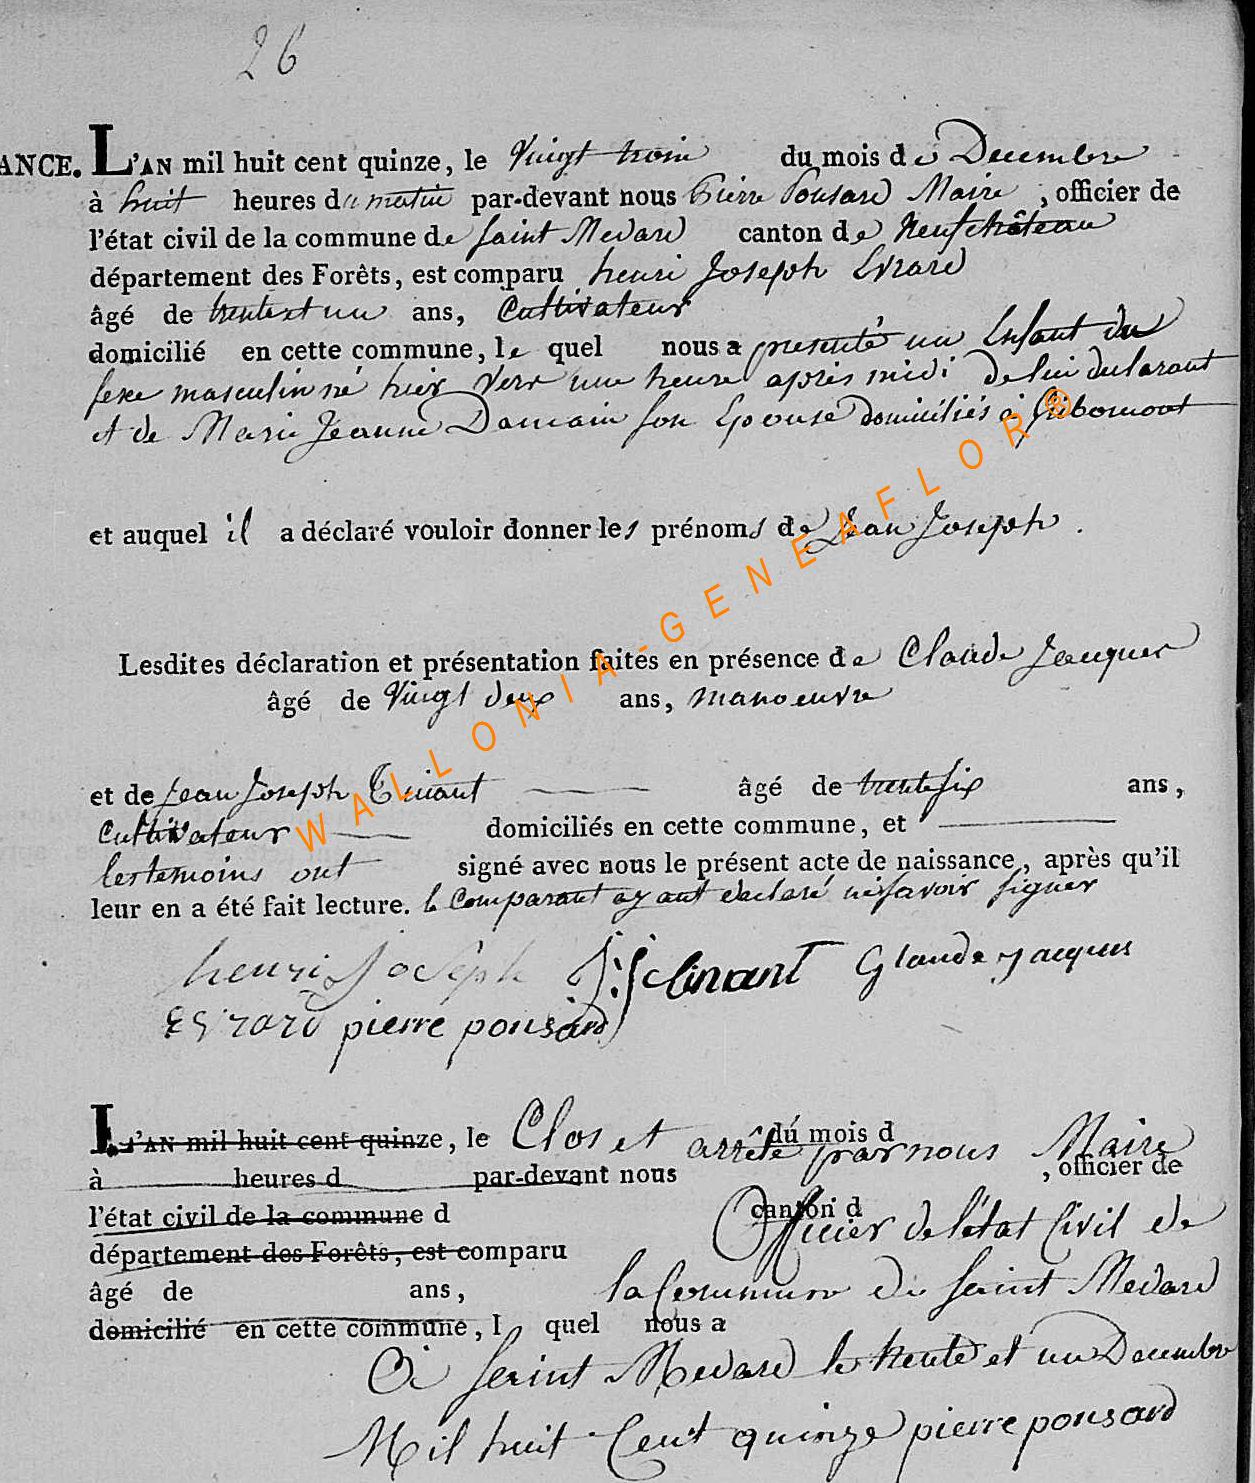 26
ANCE. L'AN mil huit cent quinze, le Vingt trois du mois de Decembre
à huit heures du matin par-devant nous Pierre Ponsard Maire, officier de
l'état civil de la commune de Saint Medard canton de Neufchâteau
département des Forêts, est comparu henri Joseph Evrard
âgé de trente et un ans, Cultivateur
domicilié en cette commune, le quel nous a presenté un Enfant du
sexe masculin né hier Vers une heure après midi de lui declarant
et de Marie Jeanne Damain son Epouse domiciliés à
et auquel il a déclaré vouloir donner les prénoms de Jean Joseph.
Lesdites déclaration et présentation faites en présence de Claude Jacques
âgé de Vingt deux ans, manoeuvre
et de Jean Joseph âgé de trente six ans,
Cultivateur domiciliés en cette commune, et
les temoins ont signé avec nous le présent acte de naissance, après qu'il
leur en a été fait lecture. le Comparant ayant declaré ne savoir signer
henri Joseph Glaude jacques
Evrard pierre ponsard
L'AN mil huit cent quinze, le Clos et arrêté par nous Maire du mois d
à heures d par-devant nous , officier de
l'état civil de la commune d canton d Officier de l'état Civil de
département des Forêts, est comparu
âgé de ans, la Commune de Saint Medard
domicilié en cette commune, l quel nous a
à Saint Medard le trente et un Decembre
Mil huit Cent quinze pierre ponsard
WALLONIA-GENEAFLOR®